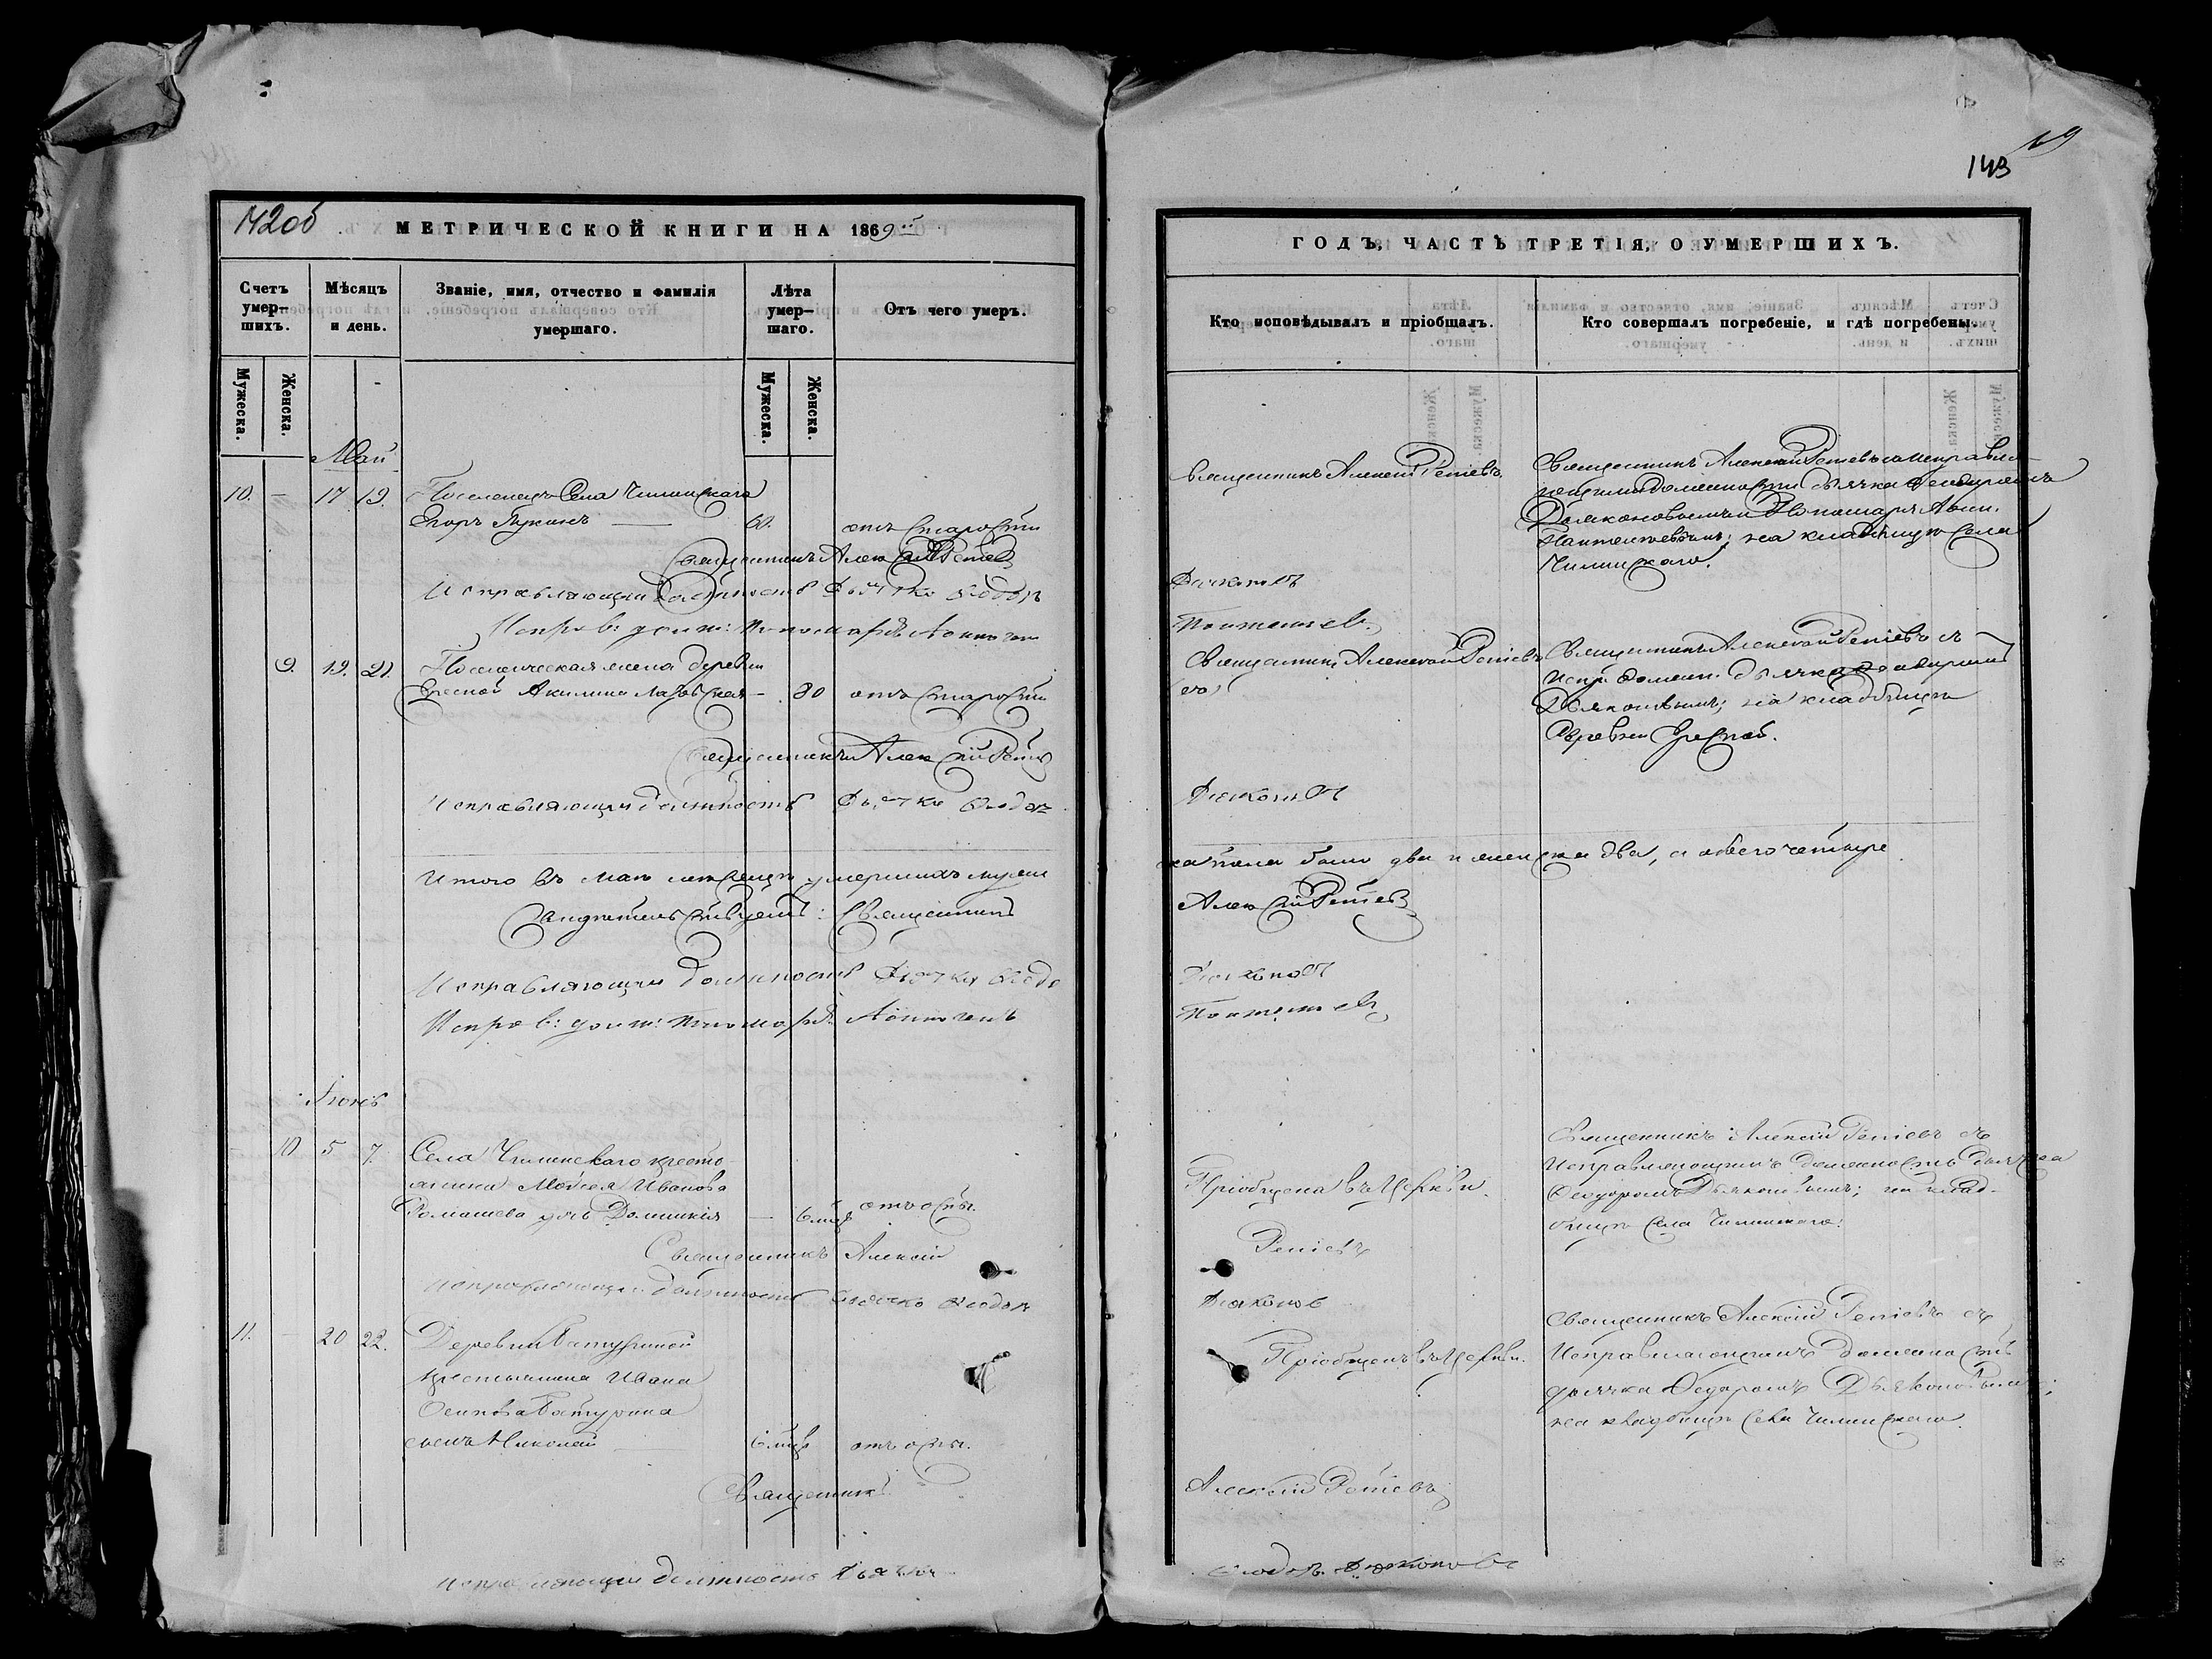 142об
МЕТРИЧЕСКОЙ КНИГИ НА 1869
Счетъ умер-
шихъ.
Мѣсяцъ
и день.
Званіе, имя, отчество и фамилія
умершаго.
Лѣта
умер-
шаго.
Отъ чего умеръ.
Мужеска.
Женска.
Мужеска.
Женска.
Май
10. — 17 19. Поселенецъ Села Чилинскаго
Егоръ — 60. отъ старости
Священникъ Алексій Репіевъ
Исправляющій должность дьячка Ѳеодоръ
Исправ: долж: пономаря Антоній
9. 19. 21. Поселенческая жена деревни
Акилина — 80 отъ старости
Священникъ Алексій Репіевъ
Исправляющій должность дьячка Ѳеодоръ
Итого въ маѣ мѣсяцѣ умершихъ муже
Свидѣтельствуетъ: Священникъ
Исправляющій должность дьячка Ѳеодо
Исправ: долж: пономаря Антоній
Іюнь
10 5 7. Села Чилинскаго кресть-
янина Мойсея Иванова
дочь Домникія — 6 мѣс отъ оспы.
Священникъ Алексій
Исправляющій должность дьячка Ѳеодоръ
11. — 20 22. Деревни Батуриной
крестьянина Ивана
Осипова Батурина
сынъ Николай — 6 мѣс отъ оспы.
Священникъ
Исправляющій должность дьячка
19
143
ГОДЪ, ЧАСТЬ ТРЕТІЯ, О УМЕРШИХЪ.
Кто исповѣдывалъ и пріобщалъ.
Кто совершалъ погребеніе, и гдѣ погребены.
Священникъ Алексій Репіевъ.
Священникъ Алексій Репіевъ съ исправля-
ющими должности дьячка Ѳеодоромъ
Дьяконовымъ и пономаря Антон.
на кладбищѣ села
Чилинскаго.
Дьяконовъ
Священникъ Алексій Репіевъ
Священникъ Алексій Репіевъ съ
Испр. должн. дьячка Ѳеодоромъ
Дьяконовымъ; на кладбищѣ
деревни
Дьяконовъ
ска пола было два и женска два, а обоего четыре
Алексій Репіевъ
Дьяконовъ
Пріобщена въ Церкви.
Священникъ Алексій Репіевъ съ
Исправляющимъ должность дьячка
Ѳеодоромъ Дьяконовымъ; на клад-
бищѣ села Чилинскаго.
Репіевъ
Дьяконовъ
Пріобщенъ въ Церкви.
Священникъ Алексій Репіевъ съ
Исправляющимъ должность
дьячка Ѳеодоромъ Дьяконовымъ;
на кладбищѣ села Чилинскаго.
Алексій Репіевъ
Ѳеодоръ Дьяконовъ